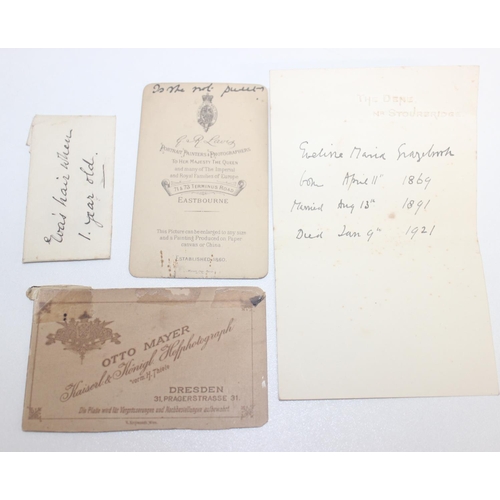 Eva's hair when
1. year old.
Is she not
G & R Lavis
Portrait Painters & Photographers
To Her Majesty The Queen
and many of The Imperial
and Royal Families of Europe
71 & 75 Terminus Road
EASTBOURNE
This Picture can be enlarged to any size
and a Painting Produced on Paper
Canvas or China
Established
OTTO MAYER
Kaiserl & Königl Hofphotograph
DRESDEN
31, PRAGERSTRASSE 31.
Die Platte wird für Vergrösserungen und Nachbestellungen aufbewahrt.
The
Eveline Maria Grazebrook
born April 11th 1869
Married Aug 13th 1891
Died Jan 9th 1921